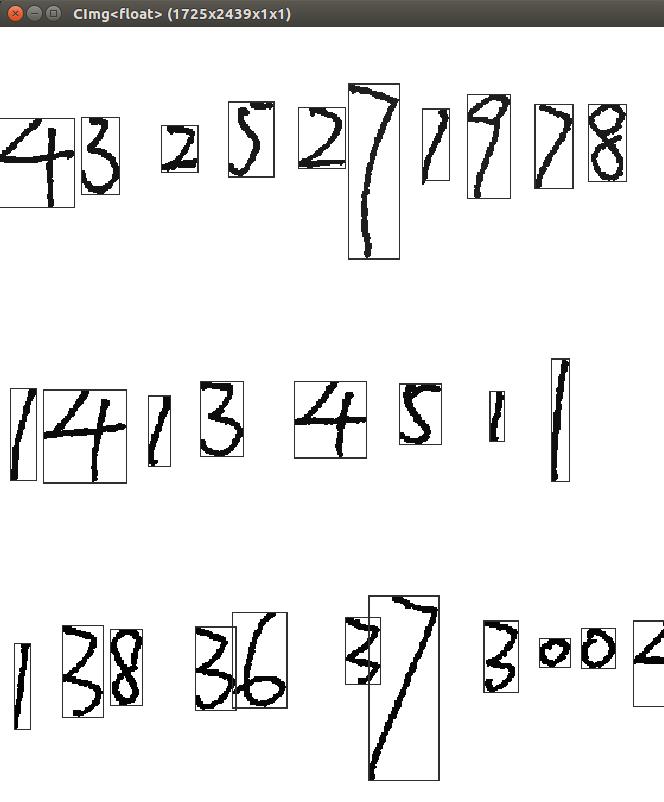 CImg<float> (1725x2439x1x1)
43 2 5 27 1 9 7 8
1413 4 5 1 1
1 38 36 37 300